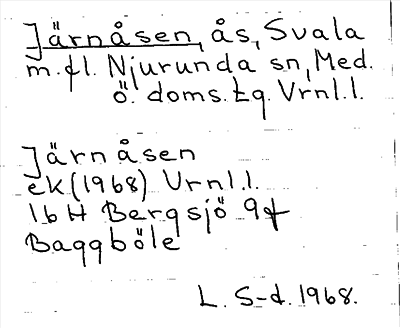 Järnåsen, ås, Svala
m.fl. Njurunda sn, Med.
ö. doms. tg. Vrnl.l.
Järnåsen
ek (1968) Vrnl.l.
16 H Bergsjö 9f
Baggböle
L. S-d. 1968.